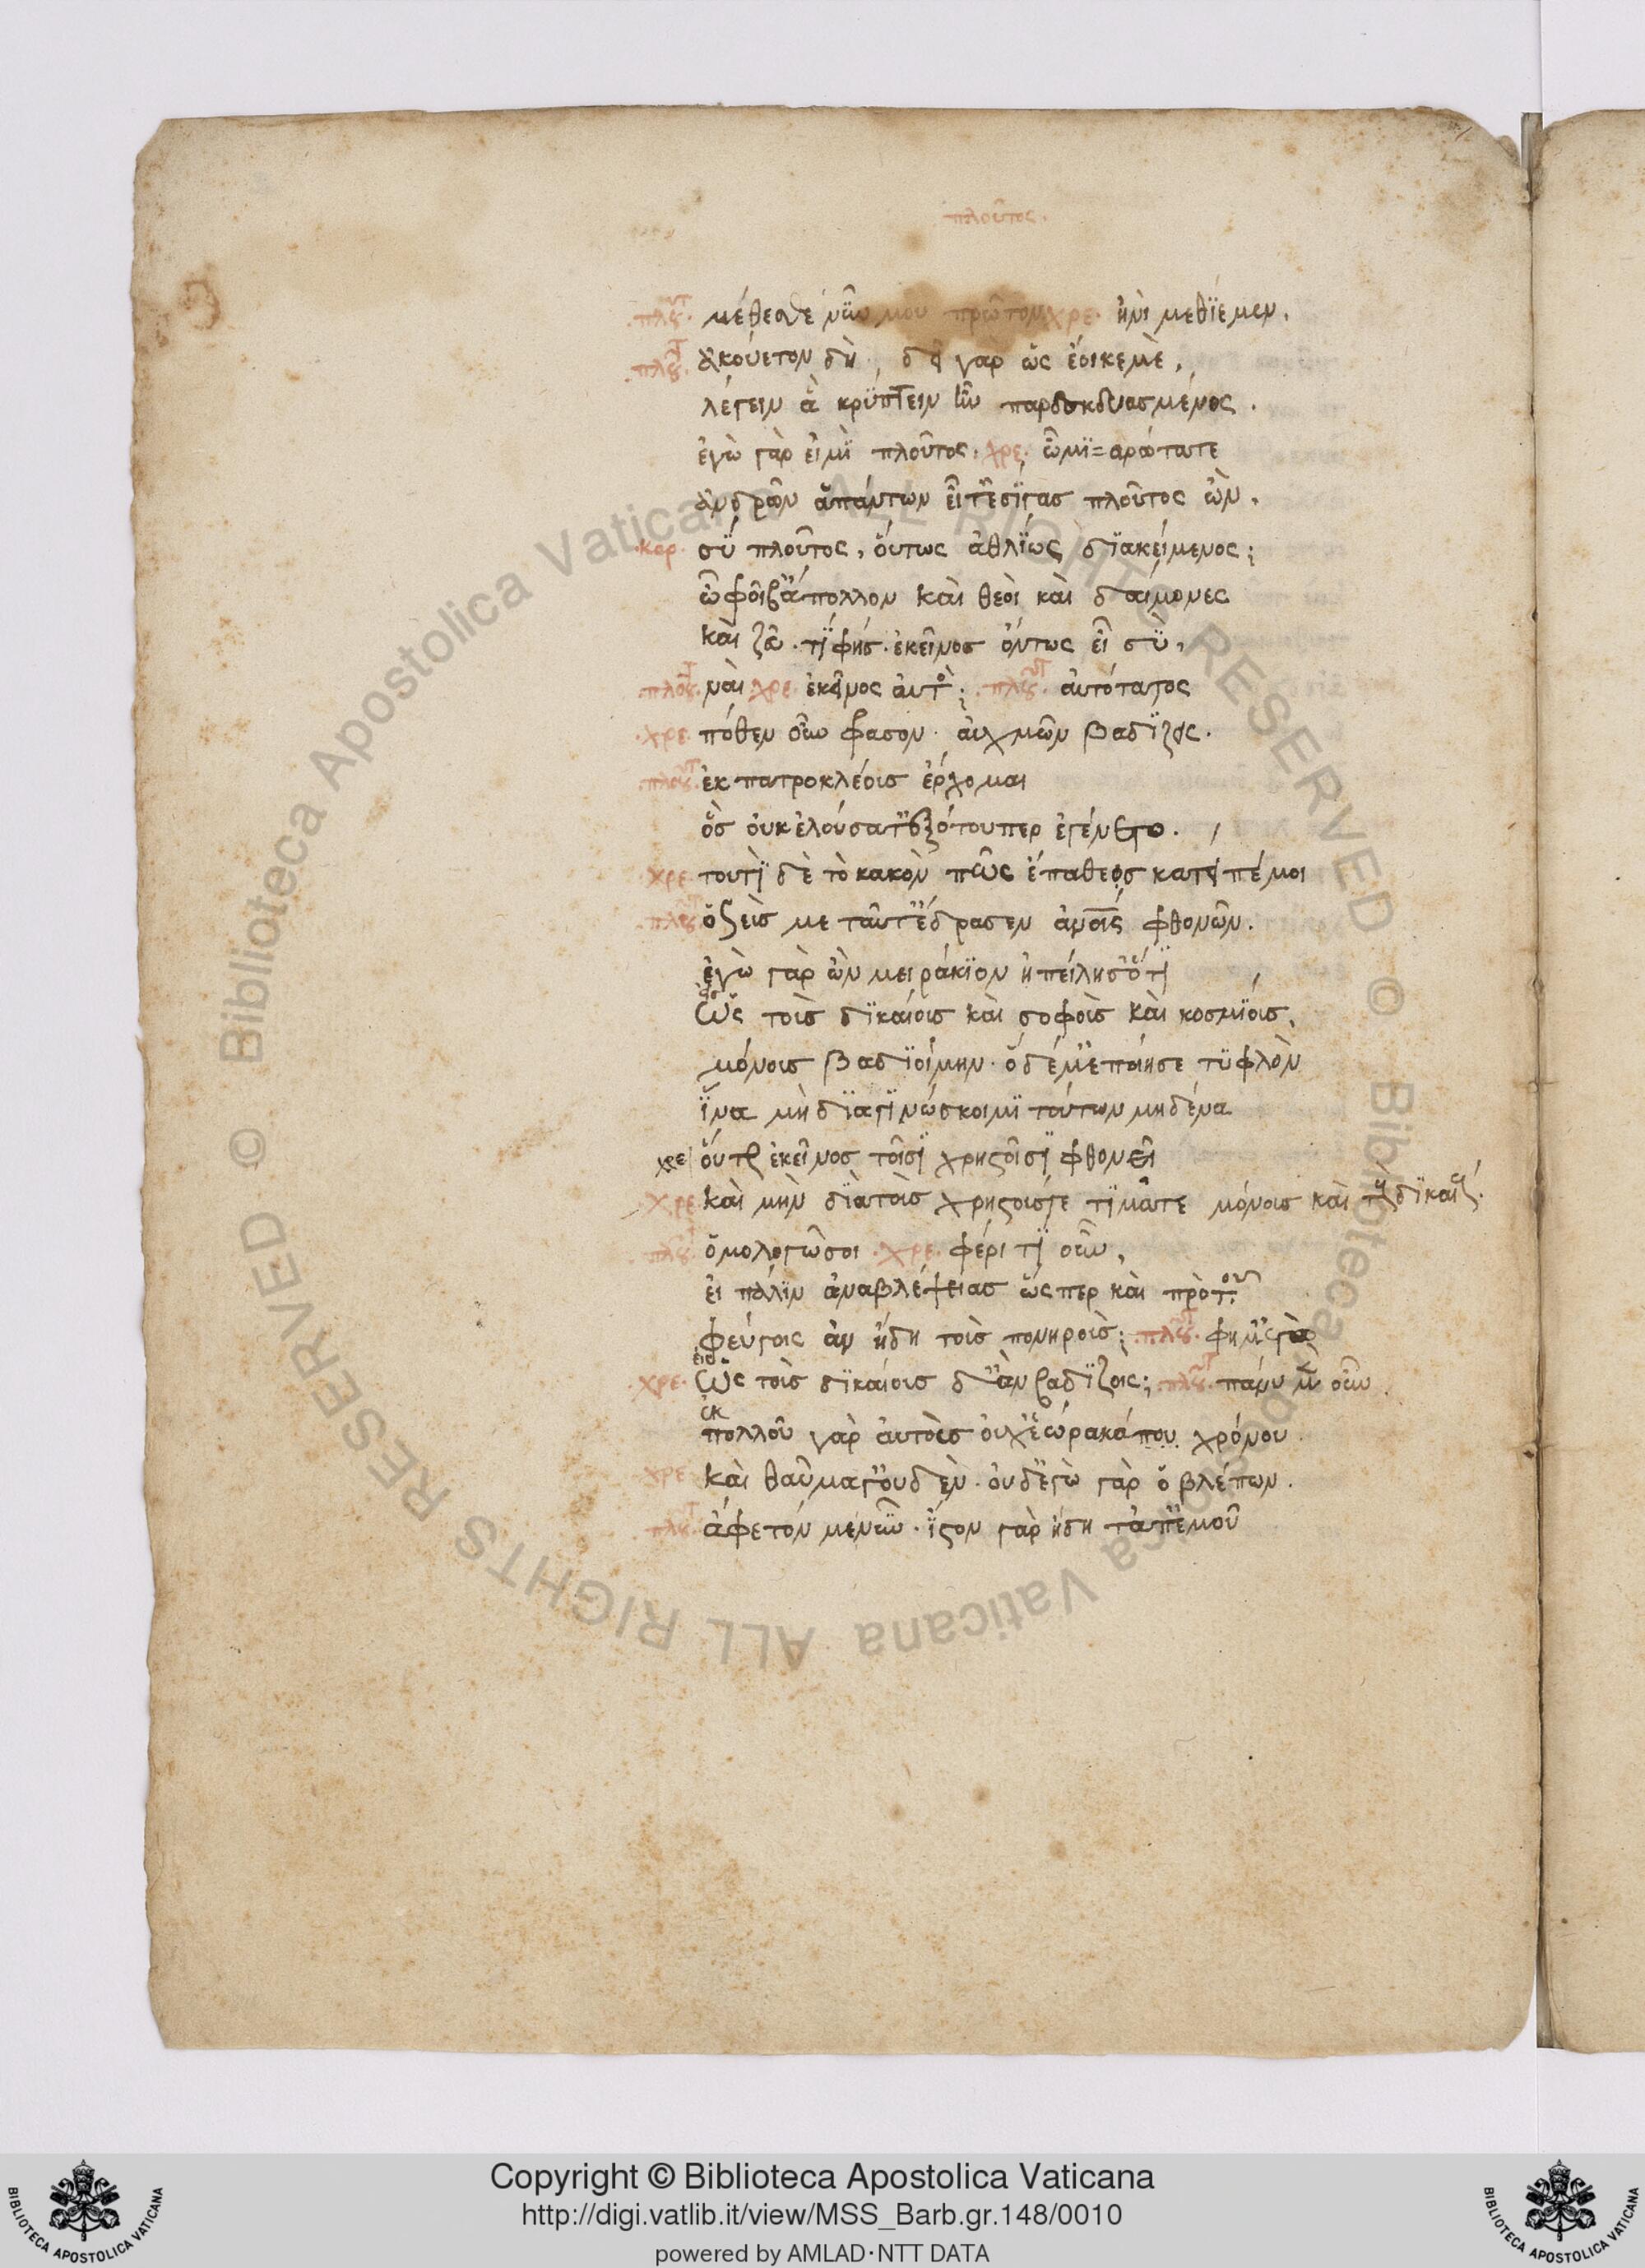 πλοῦτος.
πλουτ. μέθεσθέ νῦν μου πρῶτον χρε. ἠνὶ μεθΐεμεν.
πλουτ. ἀκούετον δὴ, δεῖ γαρ ὡς ἔοικεμὲ,
λέγειν ἃ κρΰπτειν ἦν παρεσκευασμένος.
ἐγὼ γὰρ εἰμὶ πλοῦτος. χρε. ὦμϊ=αρώτατε
ἀνδρῶν ἁπάντων εἶτ᾽ἐσΐγας πλοῦτος ὢν.
καρ. σὺ πλοῦτος, οὕτως ἀθλΐως δϊακείμενος;
ὦφοῖβἄπολλον καὶ θεοὶ καὶ δαίμονες
καὶ ζεῦ. τΐ φής. ἐκεῖνος ὄντως εἶ σὺ,
πλουτ. ναὶ χρε. ἐκεῖνος ἀυτὸς; πλουτ. ἀυτότατος
χρε. πόθεν οὖν φασον. ἀυχμῶν βαδΐζεις.
πλουτ. ἐκ πατροκλέους ἔρχομαι
ὃς οὐκἐλούσατ᾽ἐξότουπερ ἐγένετο.
χρε. τουτὶ δὲ τὸ κακὸν πῶς ἔπαθες κατειπέ μοι
πλουτ. ὁζεὺς με ταῦτ᾽ἔδρασεν ἀνοῖς φθονῶν.
ἐγὼ γὰρ ὢν μειράκϊον ἠπείλησ᾽ὅτϊ
ὡς τοὺς δϊκαίους καὶ σοφοὺς καὶ κοσμΐους,
μόνους βαδϊοίμην. ὁδέμ᾽ἐποίησε τϋφλὸν
ἵνα μὴ δϊαγϊνώσκοιμϊ τούτων μηδένα
χρε οὕτως ἐκεῖνος τοῖσϊ χρηστοῖσϊ φθονεῖ
χρε. καὶ μὴν δϊὰτοὺς χρηστούσγε τϊμᾶται μόνους καὶ τοὺς δϊκαίους.
πλουτ. ὁμολογῶσοι. χρε. φέρε τΐ οὖν,
εἰ πάλϊν ἀναβλέψειας ὥσπερ καὶ πρὸτοῦ
φεύγοις ἂν ἤδη τοὺς πονηροὺς; πλουτ. φήμ᾽ἐγὼ
χρε. ὡς τοὺς δϊκαίους δ᾽ἂν βαδΐζοις; πλουτ. πάνυ μὲν οὖν
πολλοῦ γὰρ ἀυτοὺς οὐχ᾽ἑώρακάπου χρόνου.
χρε. καὶ θαῦμαγ᾽οὐδὲν. οὐδ᾽ἐγὼ γὰρ ὁ βλέπων.
πλουτ. ἄφετόν μενῦν. ἴστον γὰρ ἤδη τἀπ᾽ἐμοῦ
Copyright © Biblioteca Apostolica Vaticana
http://digi.vatlib.it/view/MSS_Barb.gr.148/0010
powered by AMLAD·NTT DATA